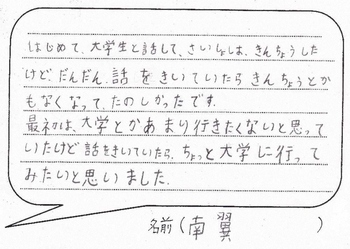 はじめて、大学生と話して、さいしょは、きんちょうした
けど、だんだん、話をきいていたらきんちょうとか
もなくなって、たのしかったです。
最初は、大学とかあまり行きたくないと思って
いたけど話をきいていたら、ちょっと大学に行って
みたいと思いました。
名前(南翼)